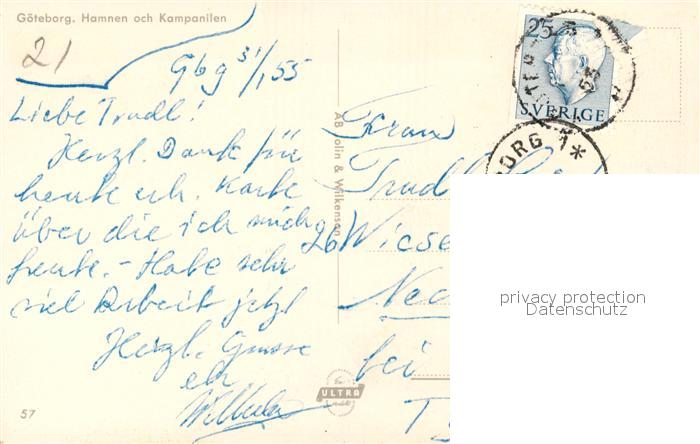 Göteborg. Hamnen och Kampanilen
21
Gbg 31/1 55
Liebe Trudl!
Herzl. Dank für
heute erh. Karte
über die ich mich
freute. - Habe sehr
viel Arbeit jetzt
Herzl. Grüsse
57
AB Bolin & Wilkenson
ULTRA
Frau
Trudl
26
bei
25
SVERIGE
BORG 1*
privacy protection
Datenschutz